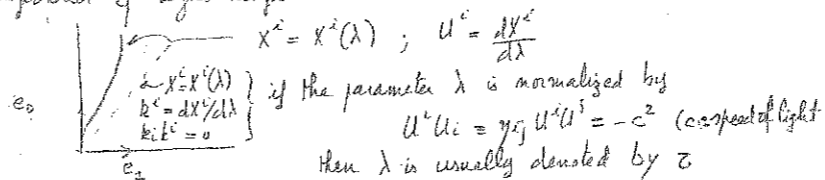 x^i = x^i(λ) ; U^i = dx^i/dλ
e_0
x^i = x^i(λ)
k^i = dx^i/dλ
k_i k^i = 0
if the parameter λ is normalized by
U^i U_i = η_ij U^i U^j = -c² (c=speed of light
then λ is usually denoted by τ
e_1